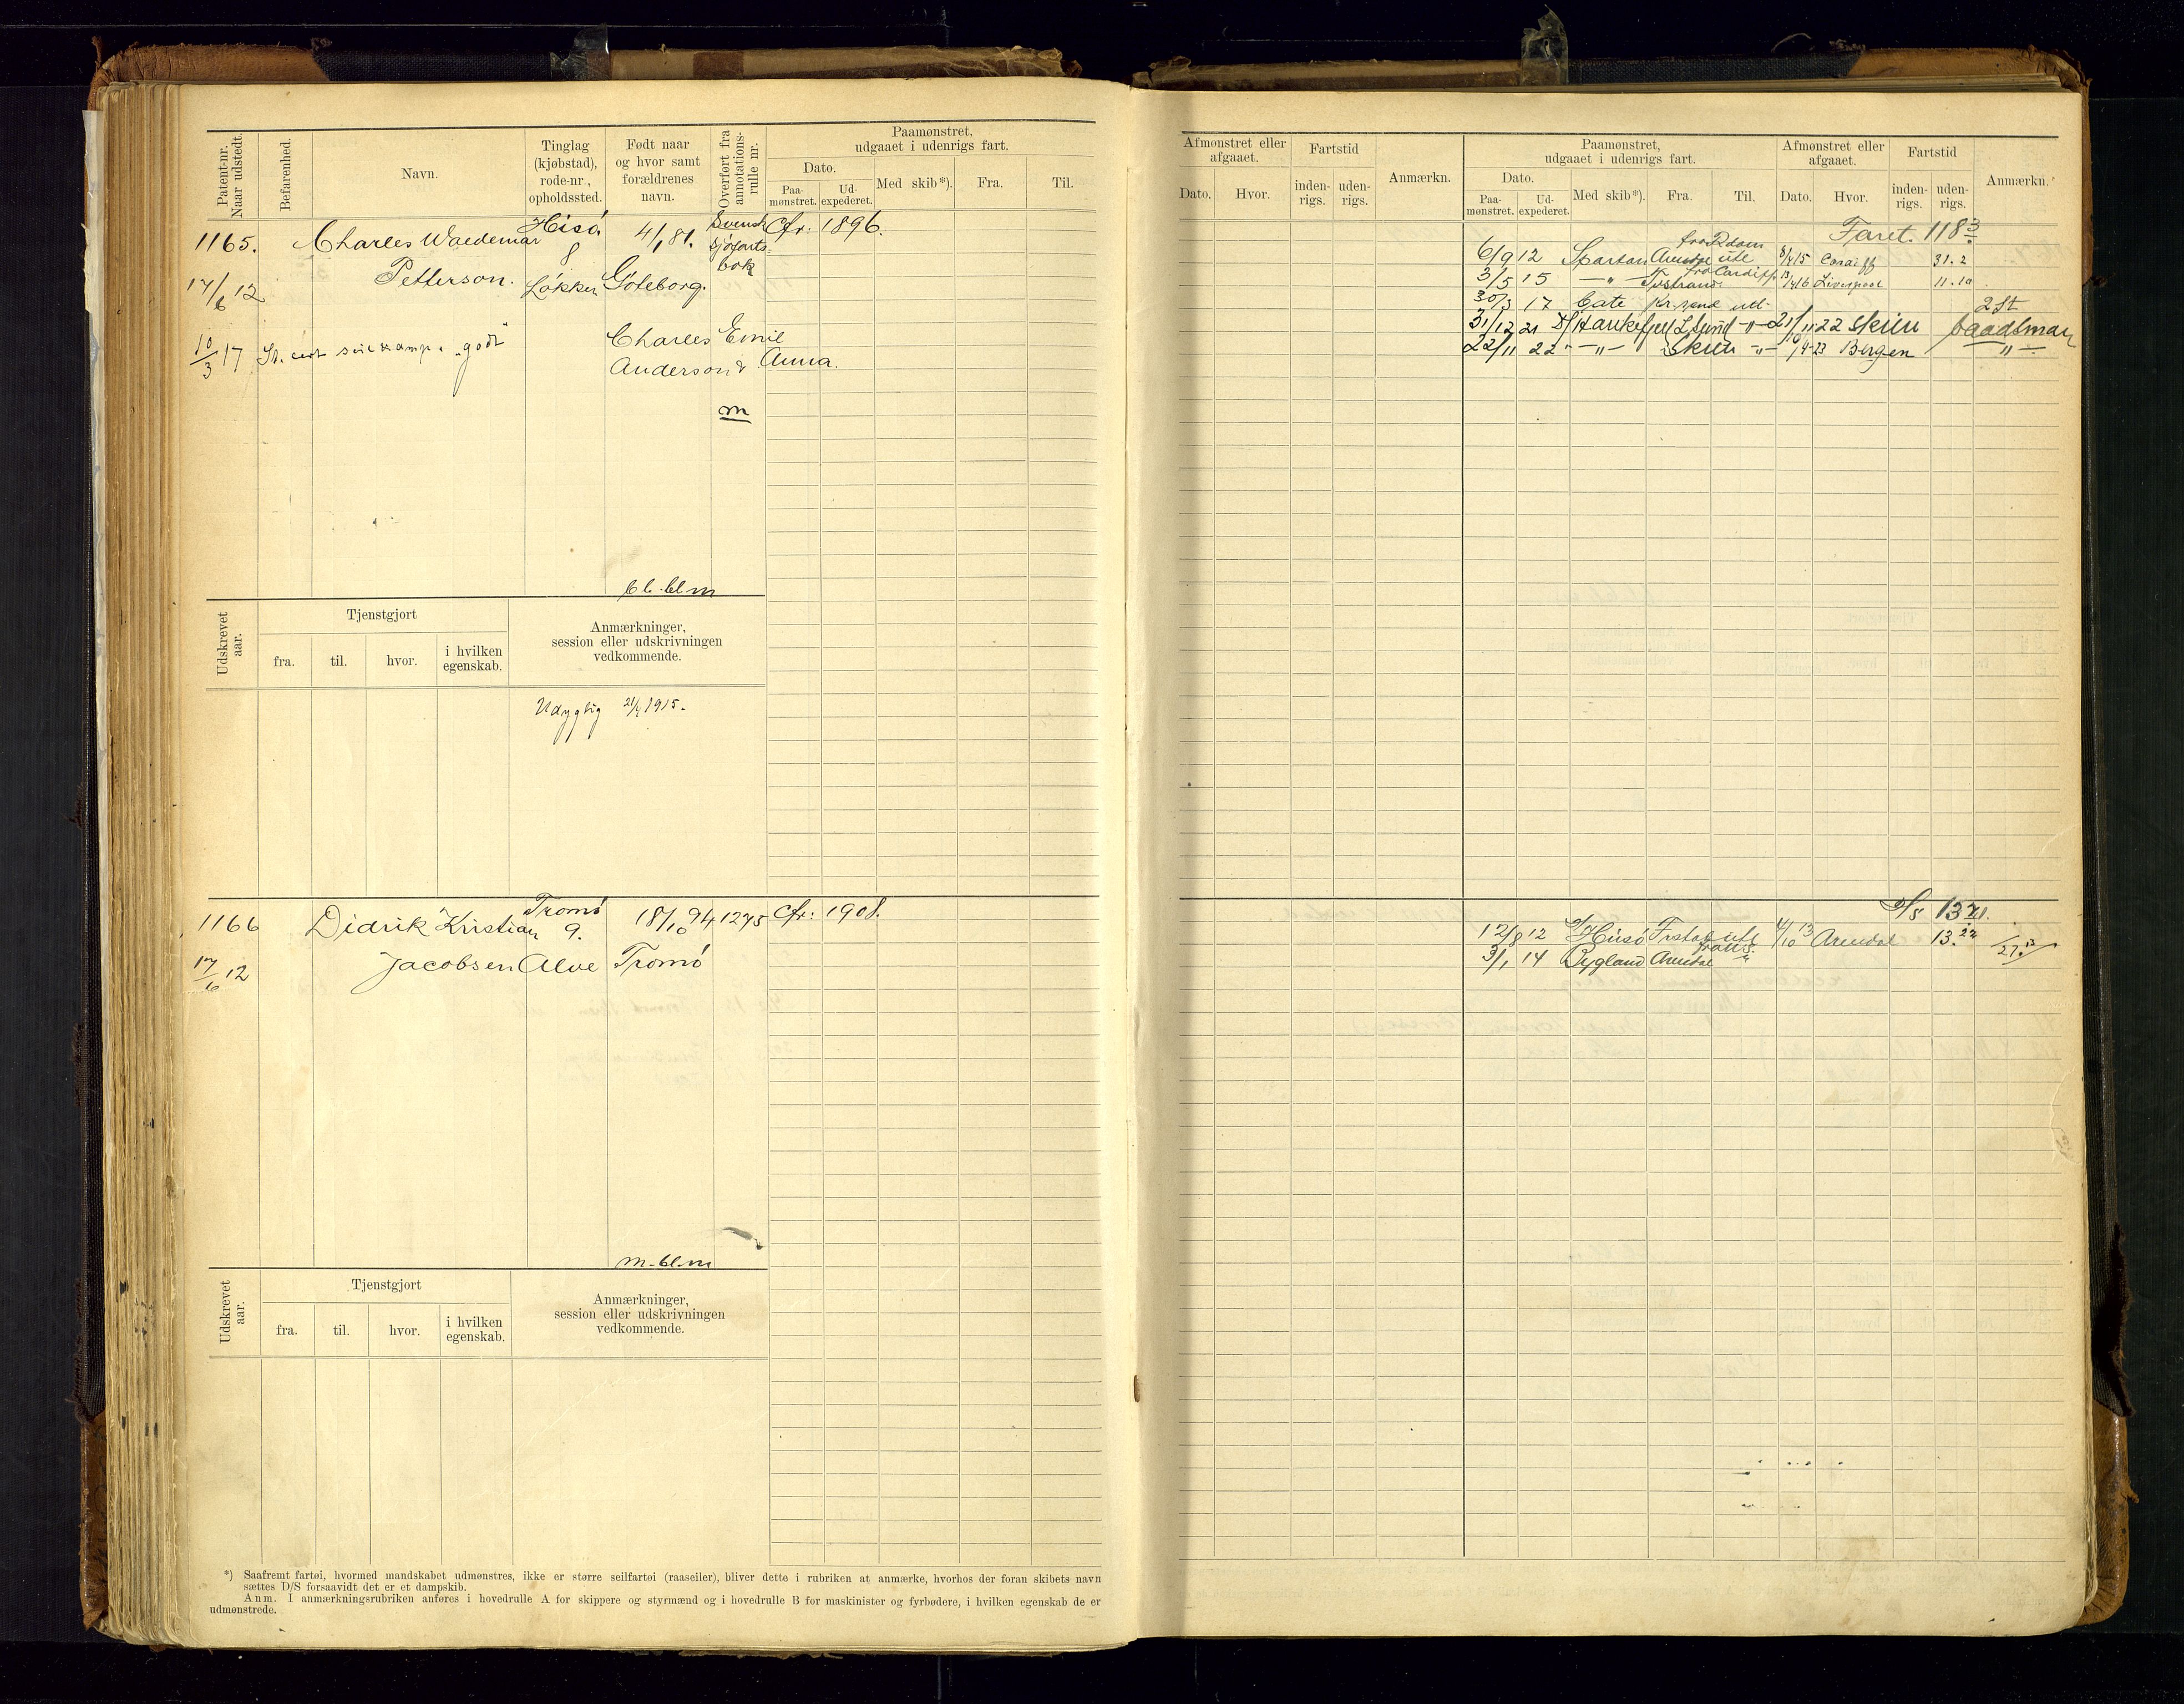 Patent-nr.
Naar udstedt.
Befarenhed.
Navn.
Tinglag
(kjøbstad),
rode-nr.,
opholdssted.
Født naar
og hvor samt
forældrenes
navn.
Overført fra
annotations-
rulle nr.
Paamønstret,
udgaaet i udenrigs fart.
Dato.
Paa-
mønstret.
Ud-
expederet.
Med skib*).
Fra.
Til.
1165.
17/6 12
10/3 17
Charles Waedemar
Petterson.
Hisö
8
Løkken
4/1 81.
Göteborg.
Charles Emil
Anderson & Anna.
Svensk
sjöfarts-
bok
m
cfr: 1896.
"godt"
bl.m
Udskrevet
aar.
Tjenstgjort
fra.
til.
hvor.
i hvilken
egenskab.
Anmærkninger,
session eller udskrivningen
vedkommende.
Udygtig 21/4 1915.
1166
17/6 12
Didrik Kristian
Jacobsen
Tromö
9.
Alve
18/10 94
Tromö
1275
cfr: 1908.
m. bl.m
Udskrevet
aar.
Tjenstgjort
fra.
til.
hvor.
i hvilken
egenskab.
Anmærkninger,
session eller udskrivningen
vedkommende.
*) Saafremt fartøi, hvormed mandskabet udmønstres, ikke er større seilfartøi (raaseiler), bliver dette i rubriken at anmærke, hvorhos der foran skibets navn
sættes D/S forsaavidt det er et dampskib.
Anm. I anmærkningsrubriken anføres i hovedrulle A for skippere og styrmænd og i hovedrulle B for maskinister og fyrbødere, i hvilken egenskab de er
udmønstrede.
Afmønstret eller
afgaaet.
Fartstid
Dato.
Hvor.
inden-
rigs.
uden-
rigs.
Anmærkn.
Paamønstret,
udgaaet i udenrigs fart.
Afmønstret eller
afgaaet.
Fartstid
Dato.
Paa-
mønstret.
Ud-
expederet.
Med skib*).
Fra.
Til.
Dato.
Hvor.
inden-
rigs.
uden-
rigs.
Anmærkn.
Faret. 118
6/9 12 Spartan ute 8/4 15 Cardiff 31.2
fra Cardiff
3/5 15 —"— 13/4 16 Liverpool 11.10
30/3 17 Cate Kr.sand utl. 2 St
31/12 21 D/S Haukefjell L.sund —"— 21/11 22 Skien baadsman
22/11 22 —"— Skien —"— Bergen —"—
12/8 12 Hisö ute 4/10 13 Arendal 13.22
3/1 14 Bygland Arendal